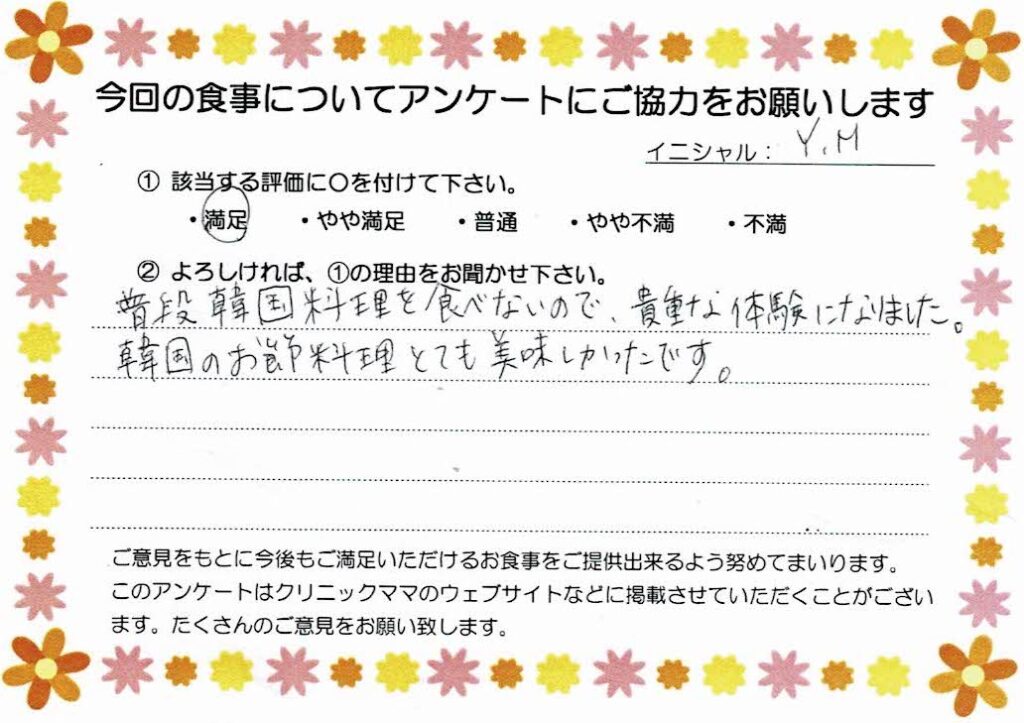 今回の食事についてアンケートにご協力をお願いします
イニシャル： Y.M
① 該当する評価に〇を付けて下さい。
・満足 ・やや満足 ・普通 ・やや不満 ・不満
② よろしければ、①の理由をお聞かせ下さい。
普段韓国料理を食べないので、貴重な体験になりました。
韓国のお節料理とても美味しかったです。
ご意見をもとに今後もご満足いただけるお食事をご提供出来るよう努めてまいります。
このアンケートはクリニックママのウェブサイトなどに掲載させていただくことがござい
ます。たくさんのご意見をお願い致します。